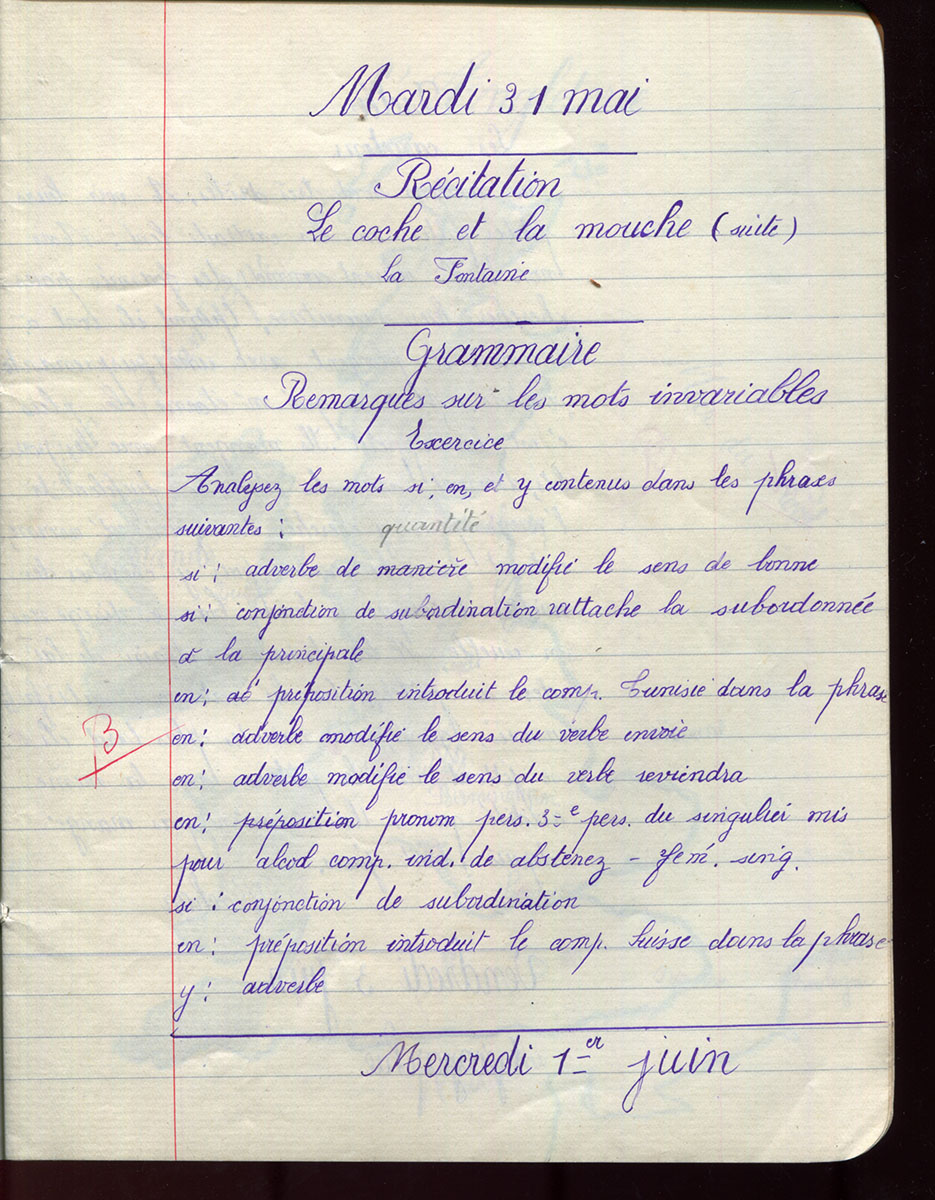 Mardi 31 mai
Récitation
Le coche et la mouche (suite)
La Fontaine
Grammaire
Remarques sur les mots invariables
Exercice
Analysez les mots si, en, et y contenus dans les phrases
suivantes :
quantité
si : adverbe de manière modifie le sens de bonne
si : conjonction de subordination rattache la subordonnée
à la principale
en : ad préposition introduit le comp. Tunisie dans la phrase
B
en : adverbe modifie le sens du verbe envoie
en : adverbe modifie le sens du verbe reviendra
en : préposition pronom pers. 3e pers. du singulier mis
pour alcool comp. ind. de abstenez - fém. sing.
si : conjonction de subordination
en : préposition introduit le comp. Suisse dans la phrase
y : adverbe
Mercredi 1er juin